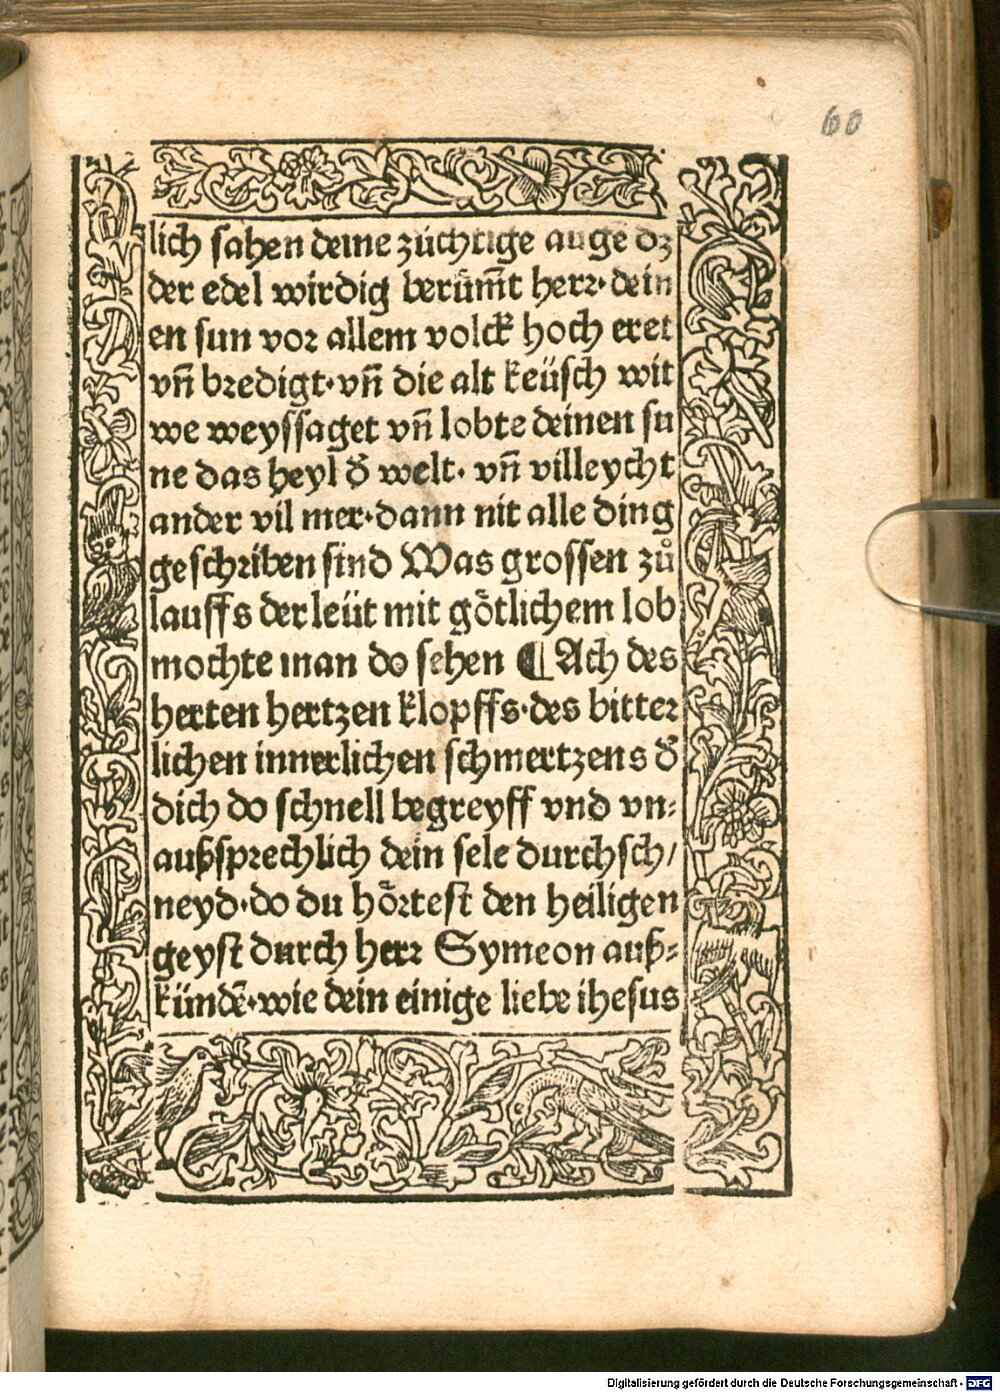 60
lich sahen deine züchtige auge dz
der edel wirdig berüm̄t herr· dein
en sun vor allem volck hoch eret
vn̄ bredigt· vn̄ die alt keüsch wit
we weyssaget vn̄ lobte deinen su
ne das heyl d̄ welt· vn̄ villeycht
ander vil mer· dann nit alle ding
geschriben sind Was grossen zů
lauffs der leüt mit götlichem lob
mochte man do sehen ¶ Ach des
herten hertzen klopffs· des bitter
lichen innerlichen schmertzens d̄
dich do schnell begreyff vnd vn⸗
außsprechlich dein sele durchsch/
neyd· do du hörtest den heiligen
geyst durch herr Symeon auß⸗
kündē· wie dein einige liebe ihesus
Digitalisierung gefördert durch die Deutsche Forschungsgemeinschaft - DFG